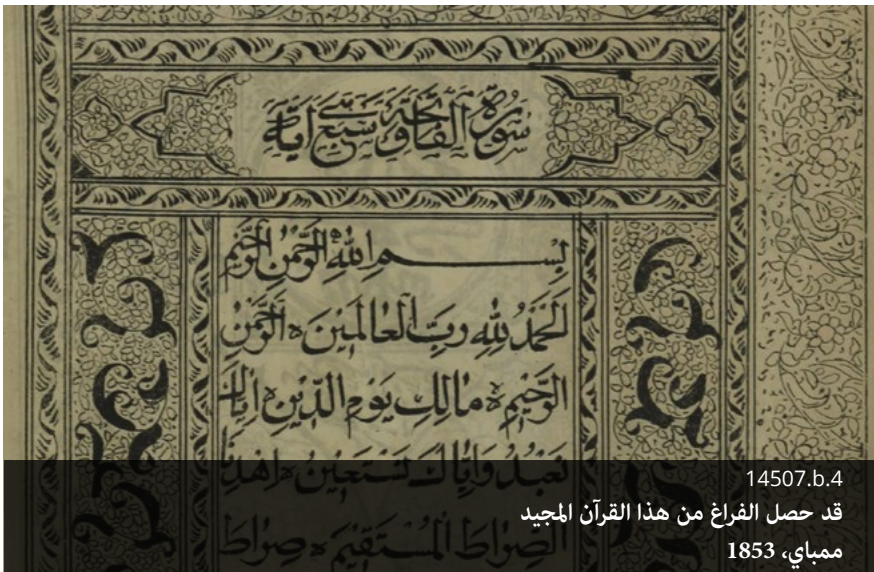 سورة الفاتحة سبع اية
بِسْمِ اللهِ الرَّحْمٰنِ الرَّحِيْمِ
اَلْحَمْدُ لِلّٰهِ رَبِّ الْعَالَمِيْنَ ه الرَّحْمٰنِ
الرَّحِيْمِ ه مَالِكِ يَوْمِ الدِّيْنِ ه اِيَّاكَ
نَعْبُدُ وَاِيَّاكَ نَسْتَعِيْنُ ه اِهْدِنَا
الصِّرَاطَ الْمُسْتَقِيْمَ ه صِرَاطَ
14507.b.4
قد حصل الفراغ من هذا القرآن المجيد
ممباي، 1853